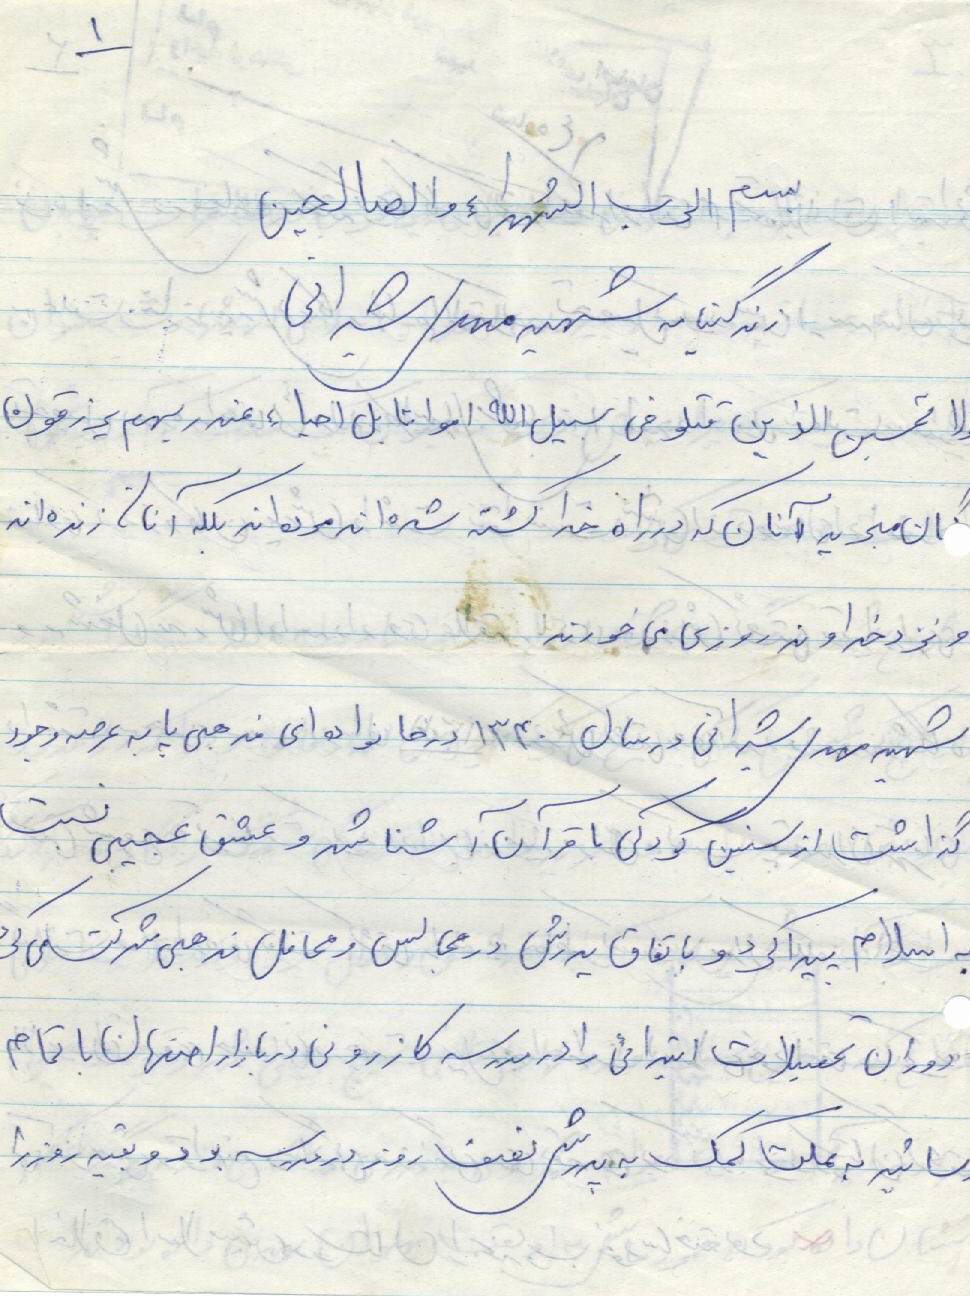 ۱
بسم الرب الشهداء والصالحین
زندگینامه شهید مهدی شیرانی
ولا تحسبن الذین قتلو فی سبیل الله امواتا بل احیاء عندربهم یرزقون
گمان مبرید آنان که در راه خدا کشته شده‌اند مرده‌اند بلکه آنان زنده‌اند
و نزد خداوند روزی می خورند
شهید مهدی شیرانی در سال ۱۳۴۰ در خانواده‌ای مذهبی پا به عرصه وجود
گذاشت از سنین کودکی با قرآن آشنا شد و عشق عجیبی نسبت
به اسلام پیدا کرد و باتفاق پدرش در مجالس و محافل مذهبی شرکت میکرد
دوران تحصیلات ابتدائی را در مدرسه کازرونی در بازار اصفهان با تمام
رسانید به علت کمک به پدرش نصف روز در مدرسه بود و بقیه روز را